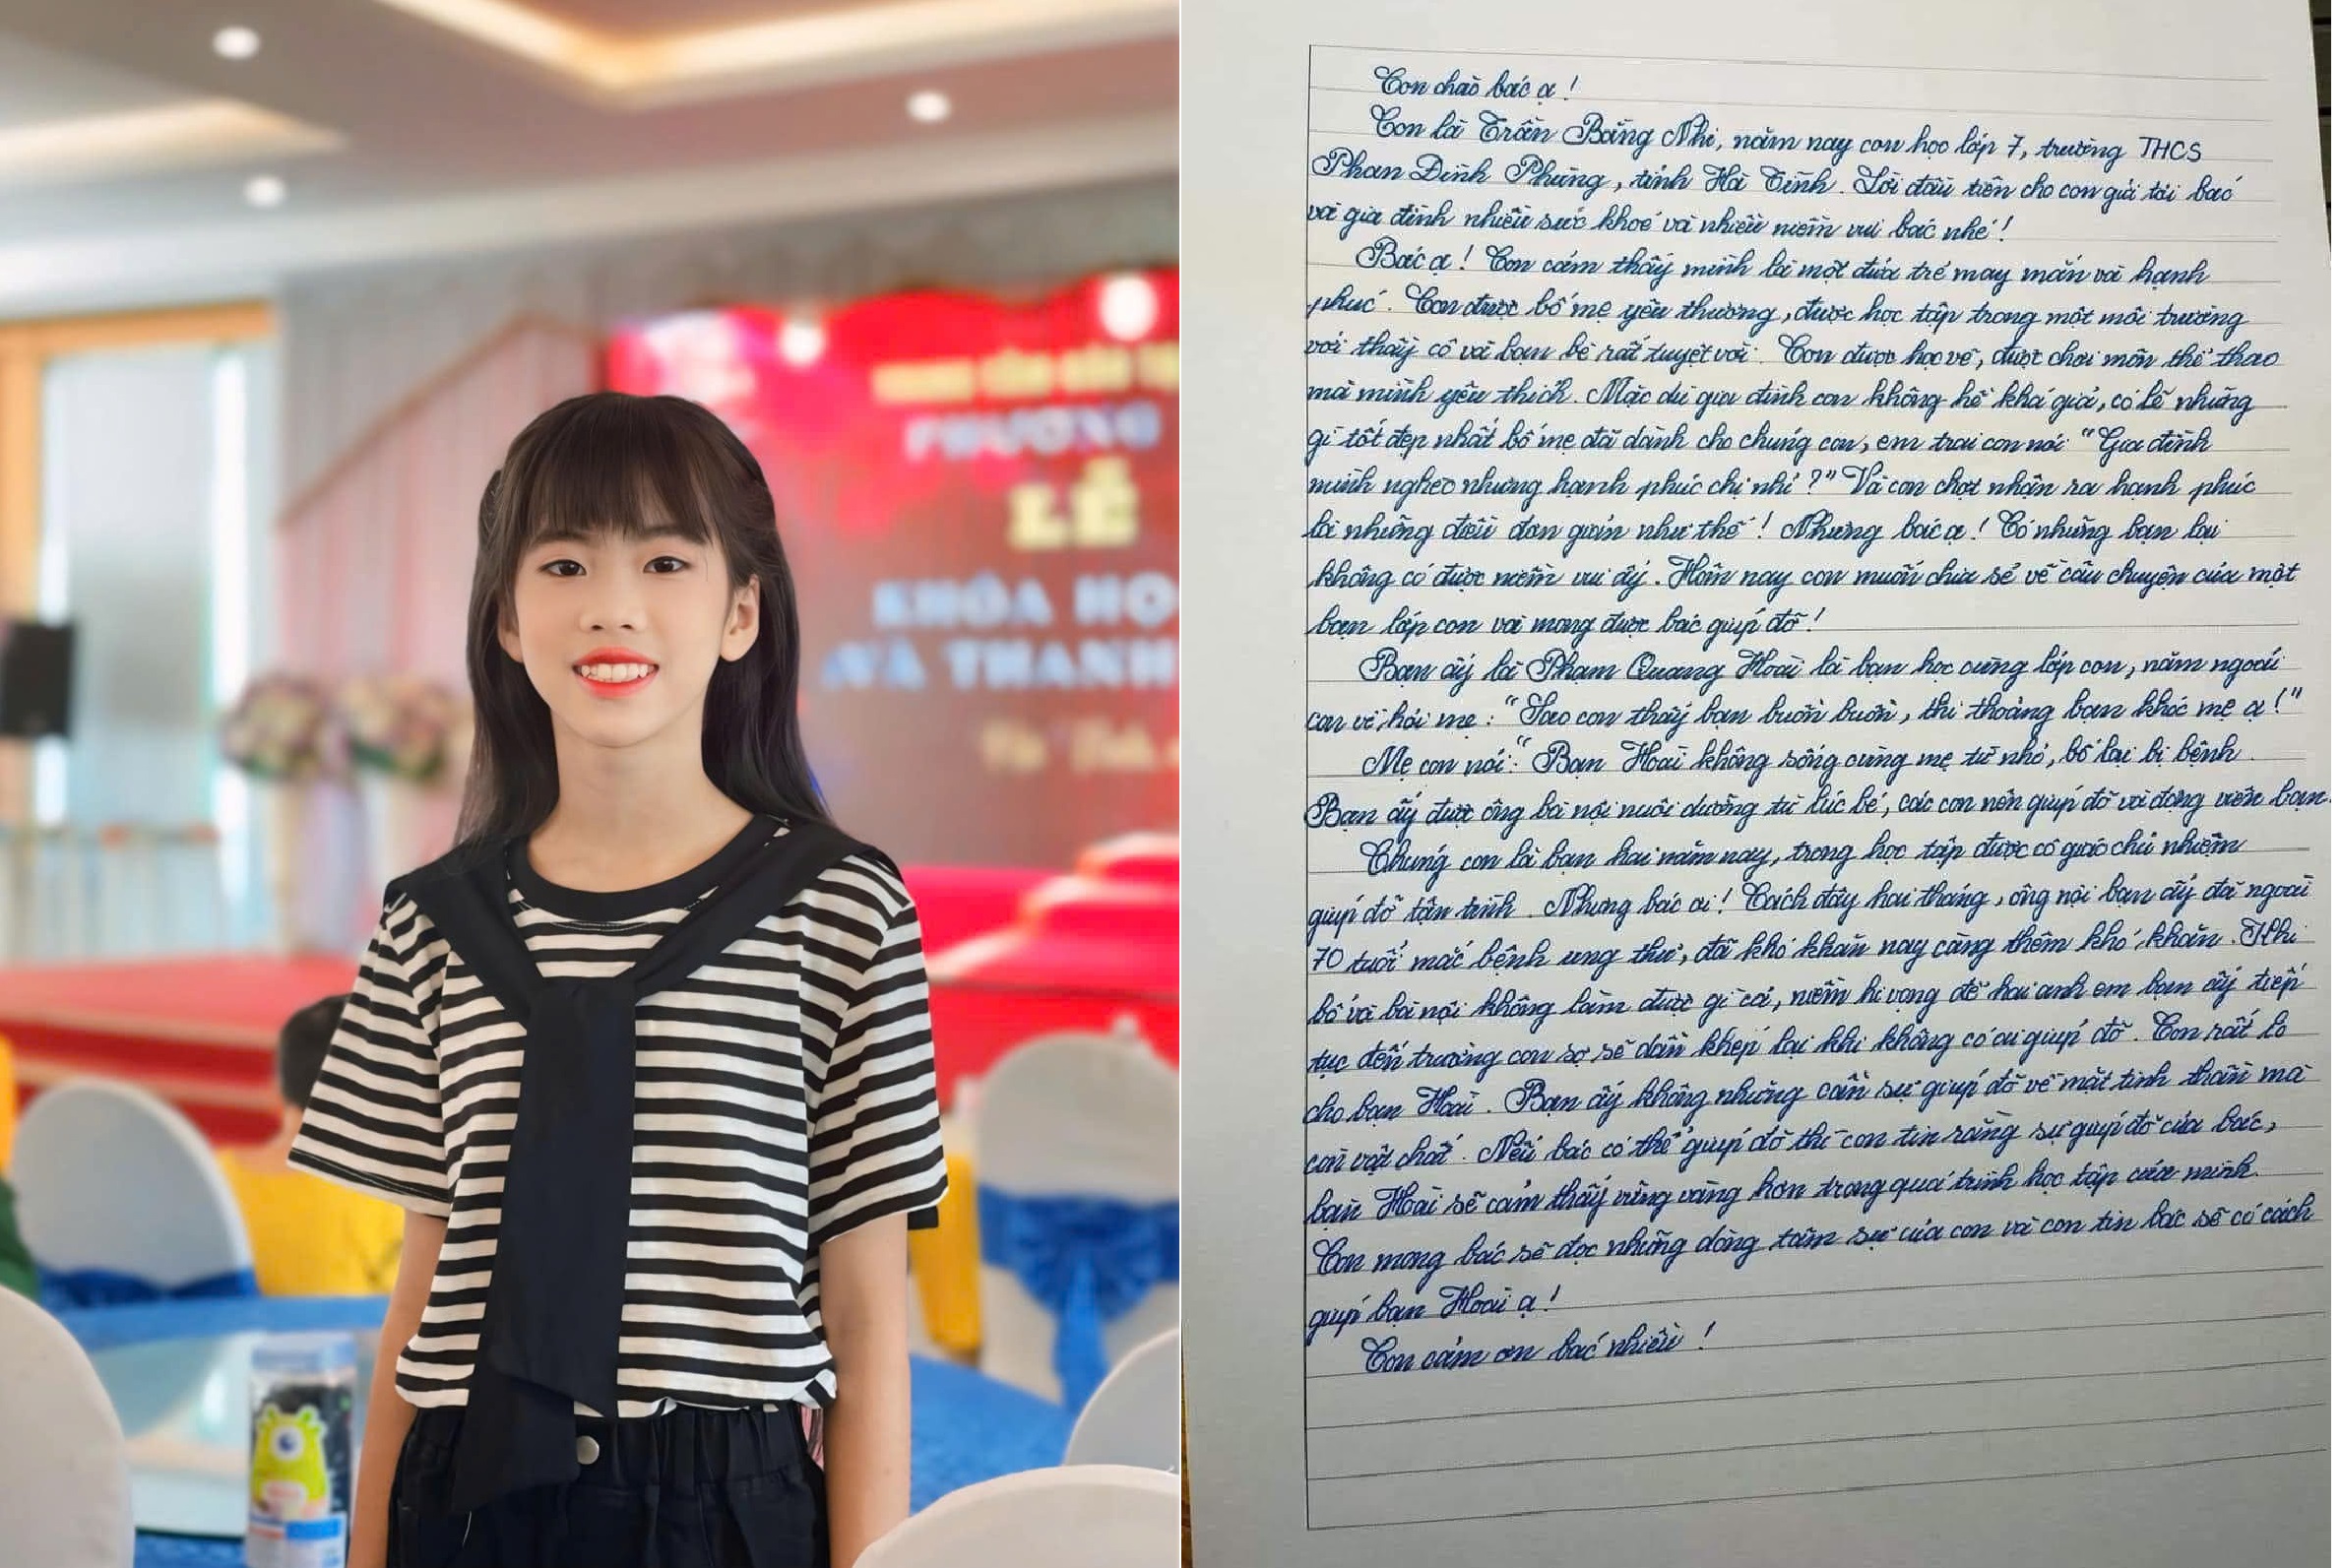 PHƯƠNG
LỄ
KHÓA HỌ
VÀ THANH
Con chào bác ạ!
Con là Trần Băng Nhi, năm nay con học lớp 7, trường THCS
Phan Đình Phùng, tỉnh Hà Tĩnh. Lời đầu tiên cho con gửi tới bác
và gia đình nhiều sức khoẻ và nhiều niềm vui bác nhé!
Bác ạ! Con cảm thấy mình là một đứa trẻ may mắn và hạnh
phúc. Con được bố mẹ yêu thương, được học tập trong một môi trường
với thầy cô và bạn bè rất tuyệt vời. Con được học vẽ, được chơi môn thể thao
mà mình yêu thích. Mặc dù gia đình con không hề khá giả, có lẽ những
gì tốt đẹp nhất bố mẹ đã dành cho chúng con, em trai con nói "Gia đình
mình nghèo nhưng hạnh phúc chị nhỉ?" Và con chợt nhận ra hạnh phúc
là những điều đơn giản như thế! Nhưng bác ạ! Có những bạn lại
không có được niềm vui ấy. Hôm nay con muốn chia sẻ về câu chuyện của một
bạn lớp con và mong được bác giúp đỡ!
Bạn ấy là Phạm Quang Hoài là bạn học cùng lớp con, năm ngoái
con về hỏi mẹ: "Sao con thấy bạn buồn buồn, thi thoảng bạn khóc mẹ ạ!"
Mẹ con nói: "Bạn Hoài không sống cùng mẹ từ nhỏ, bố lại bị bệnh.
Bạn ấy được ông bà nội nuôi dưỡng từ lúc bé, các con nên giúp đỡ và động viên bạn.
Chúng con là bạn hai năm nay, trong học tập được cô giáo chủ nhiệm
giúp đỡ tận tình. Nhưng bác ơi! Cách đây hai tháng, ông nội bạn ấy đã ngoài
70 tuổi mắc bệnh ung thư, đã khó khăn nay càng thêm khó khăn. Khi
bố và bà nội không làm được gì cả, niềm hi vọng để hai anh em bạn ấy tiếp
tục đến trường con sợ sẽ dần khép lại khi không có ai giúp đỡ. Con rất lo
cho bạn Hoài. Bạn ấy không những cần sự giúp đỡ về mặt tinh thần mà
còn vật chất. Nếu bác có thể giúp đỡ thì con tin rằng sự giúp đỡ của bác,
bạn Hoài sẽ cảm thấy vững vàng hơn trong quá trình học tập của mình.
Con mong bác sẽ đọc những dòng tâm sự của con và con tin bác sẽ có cách
giúp bạn Hoài ạ!
Con cảm ơn bác nhiều!